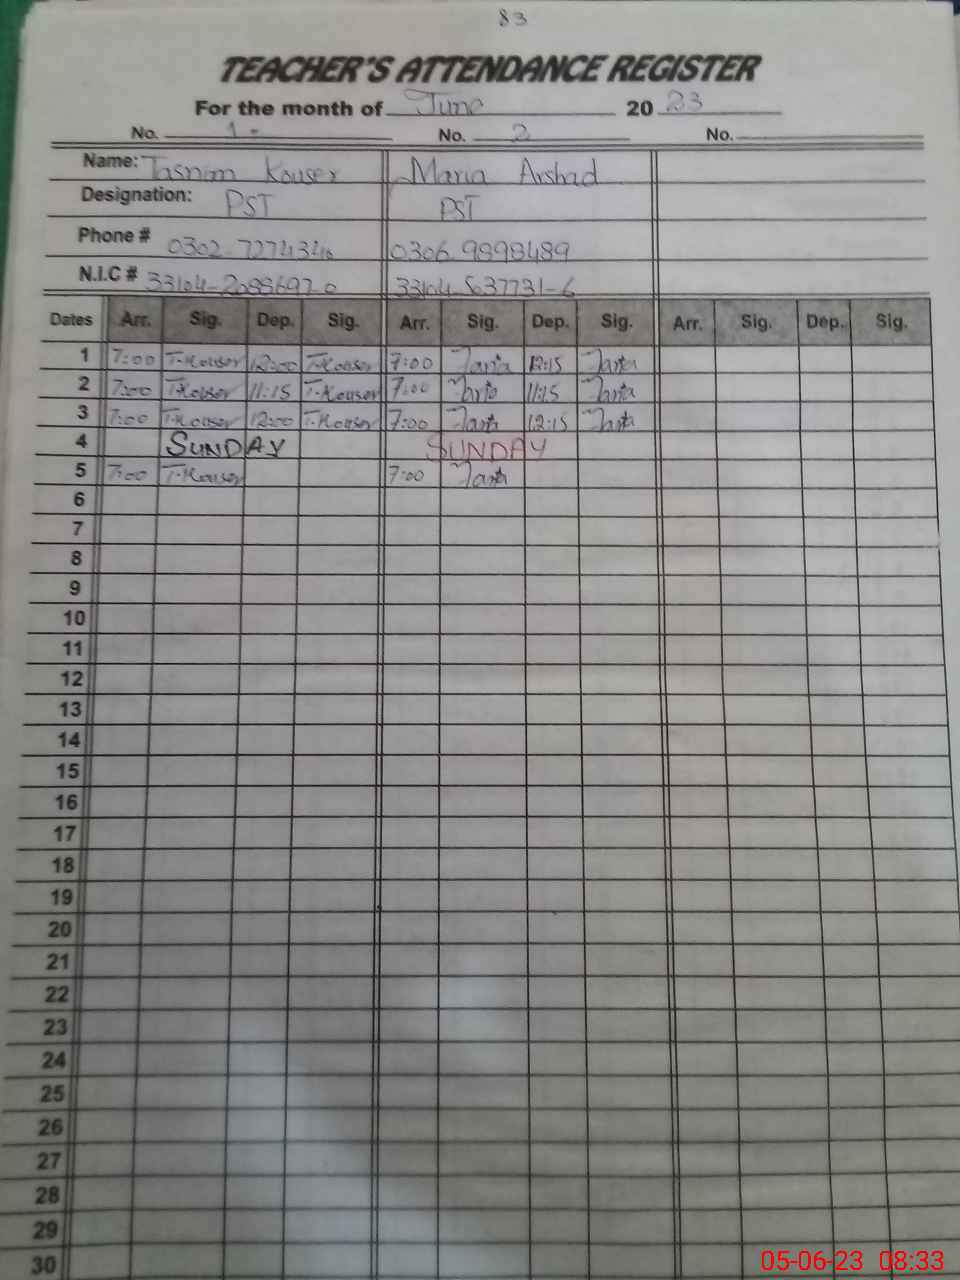 83
TEACHER'S ATTENDANCE REGISTER
For the month of June 2023
No. 1- No. 2 No.
Name: Tasnim Kouser Maria Arshad
Designation: PST PST
Phone # 0306-9898489
N.I.C #
Dates Arr. Sig. Dep. Sig. Arr. Sig. Dep. Sig. Arr. Sig. Dep. Sig.
1 7:00 T-Kouser 12:00 T-Kouser 7:00 Maria 12:15 Maria
2 7:00 T-Kouser 11:15 T-Kouser 7:00 Maria 11:15 Maria
3 7:00 T-Kouser 12:00 T-Kouser 7:00 Maria 12:15 Maria
4 SUNDAY SUNDAY
5 7:00 T-Kouser 7:00 Maria
6
7
8
9
10
11
12
13
14
15
16
17
18
19
20
21
22
23
24
25
26
27
28
29
30
05-06-23 08:33